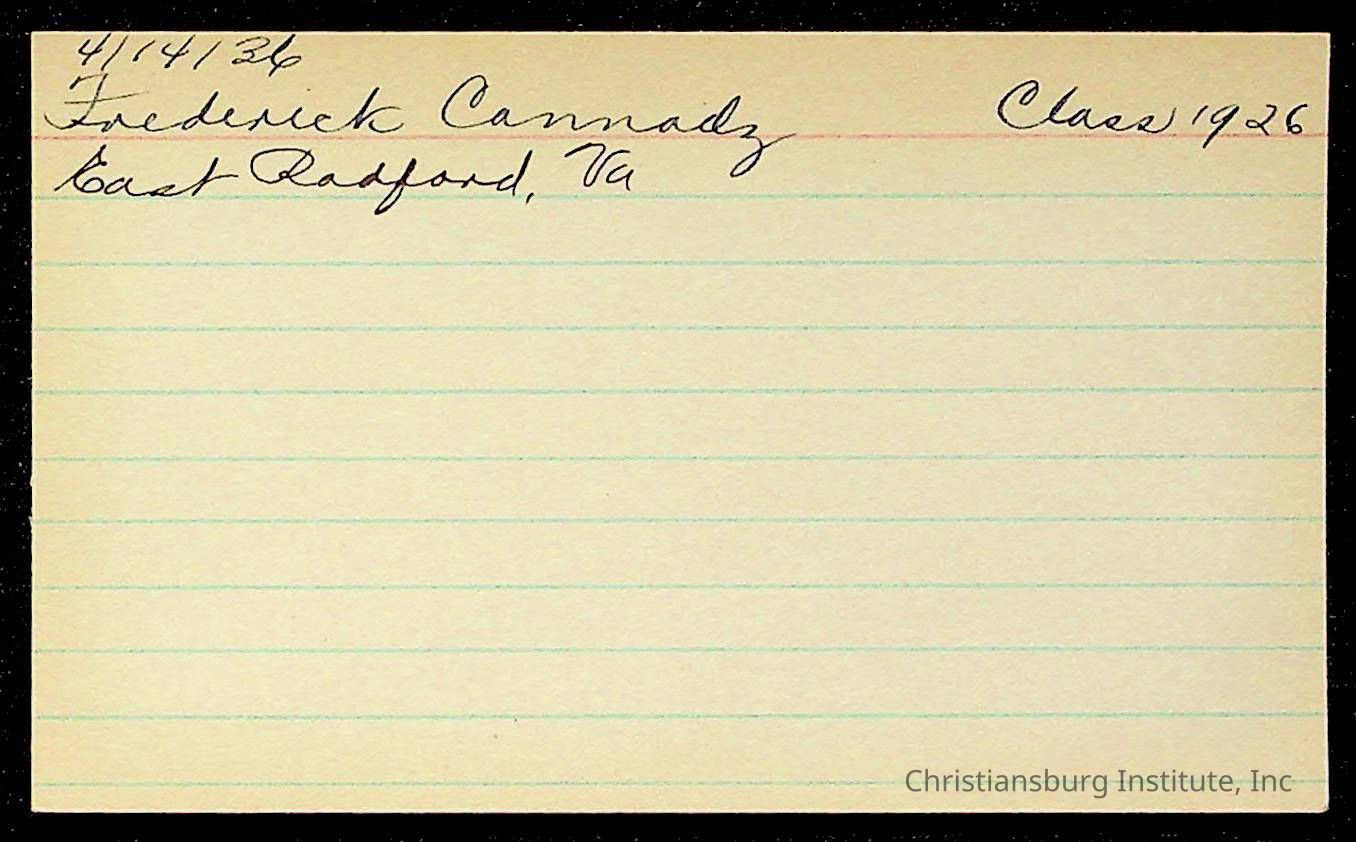 4/14/36
Frederick Cannady Class 1926
East Radford, Va
Christiansburg Institute, Inc